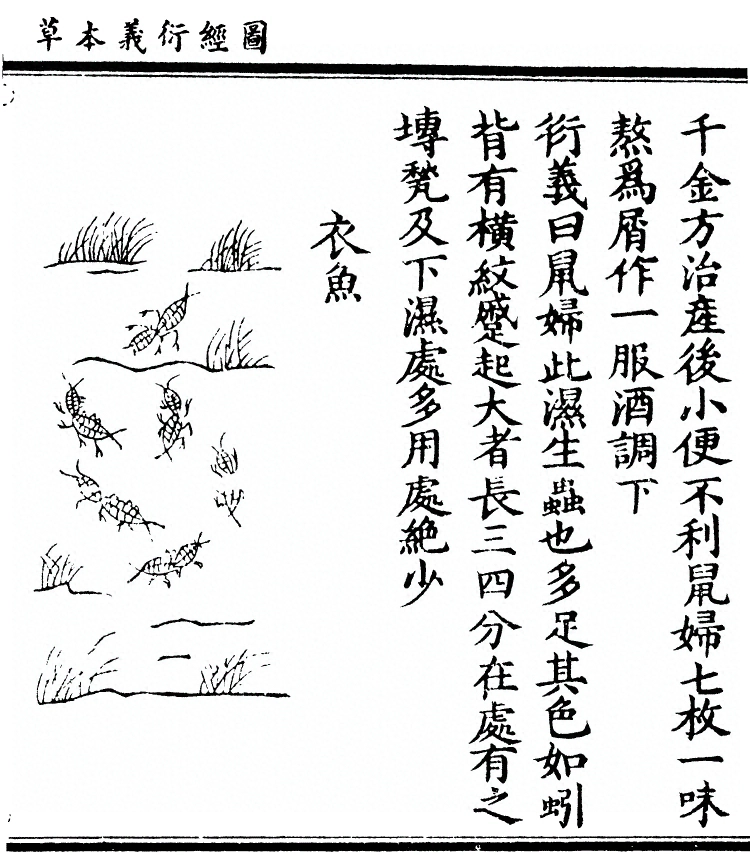 圖經衍義本草
千金方治產後小便不利鼠婦七枚一味
熬爲屑作一服酒調下
衍義曰鼠婦此濕生蟲也多足其色如蚓
背有橫紋蹙起大者長三四分在處有之
塼甃及下濕處多用處絶少
衣魚